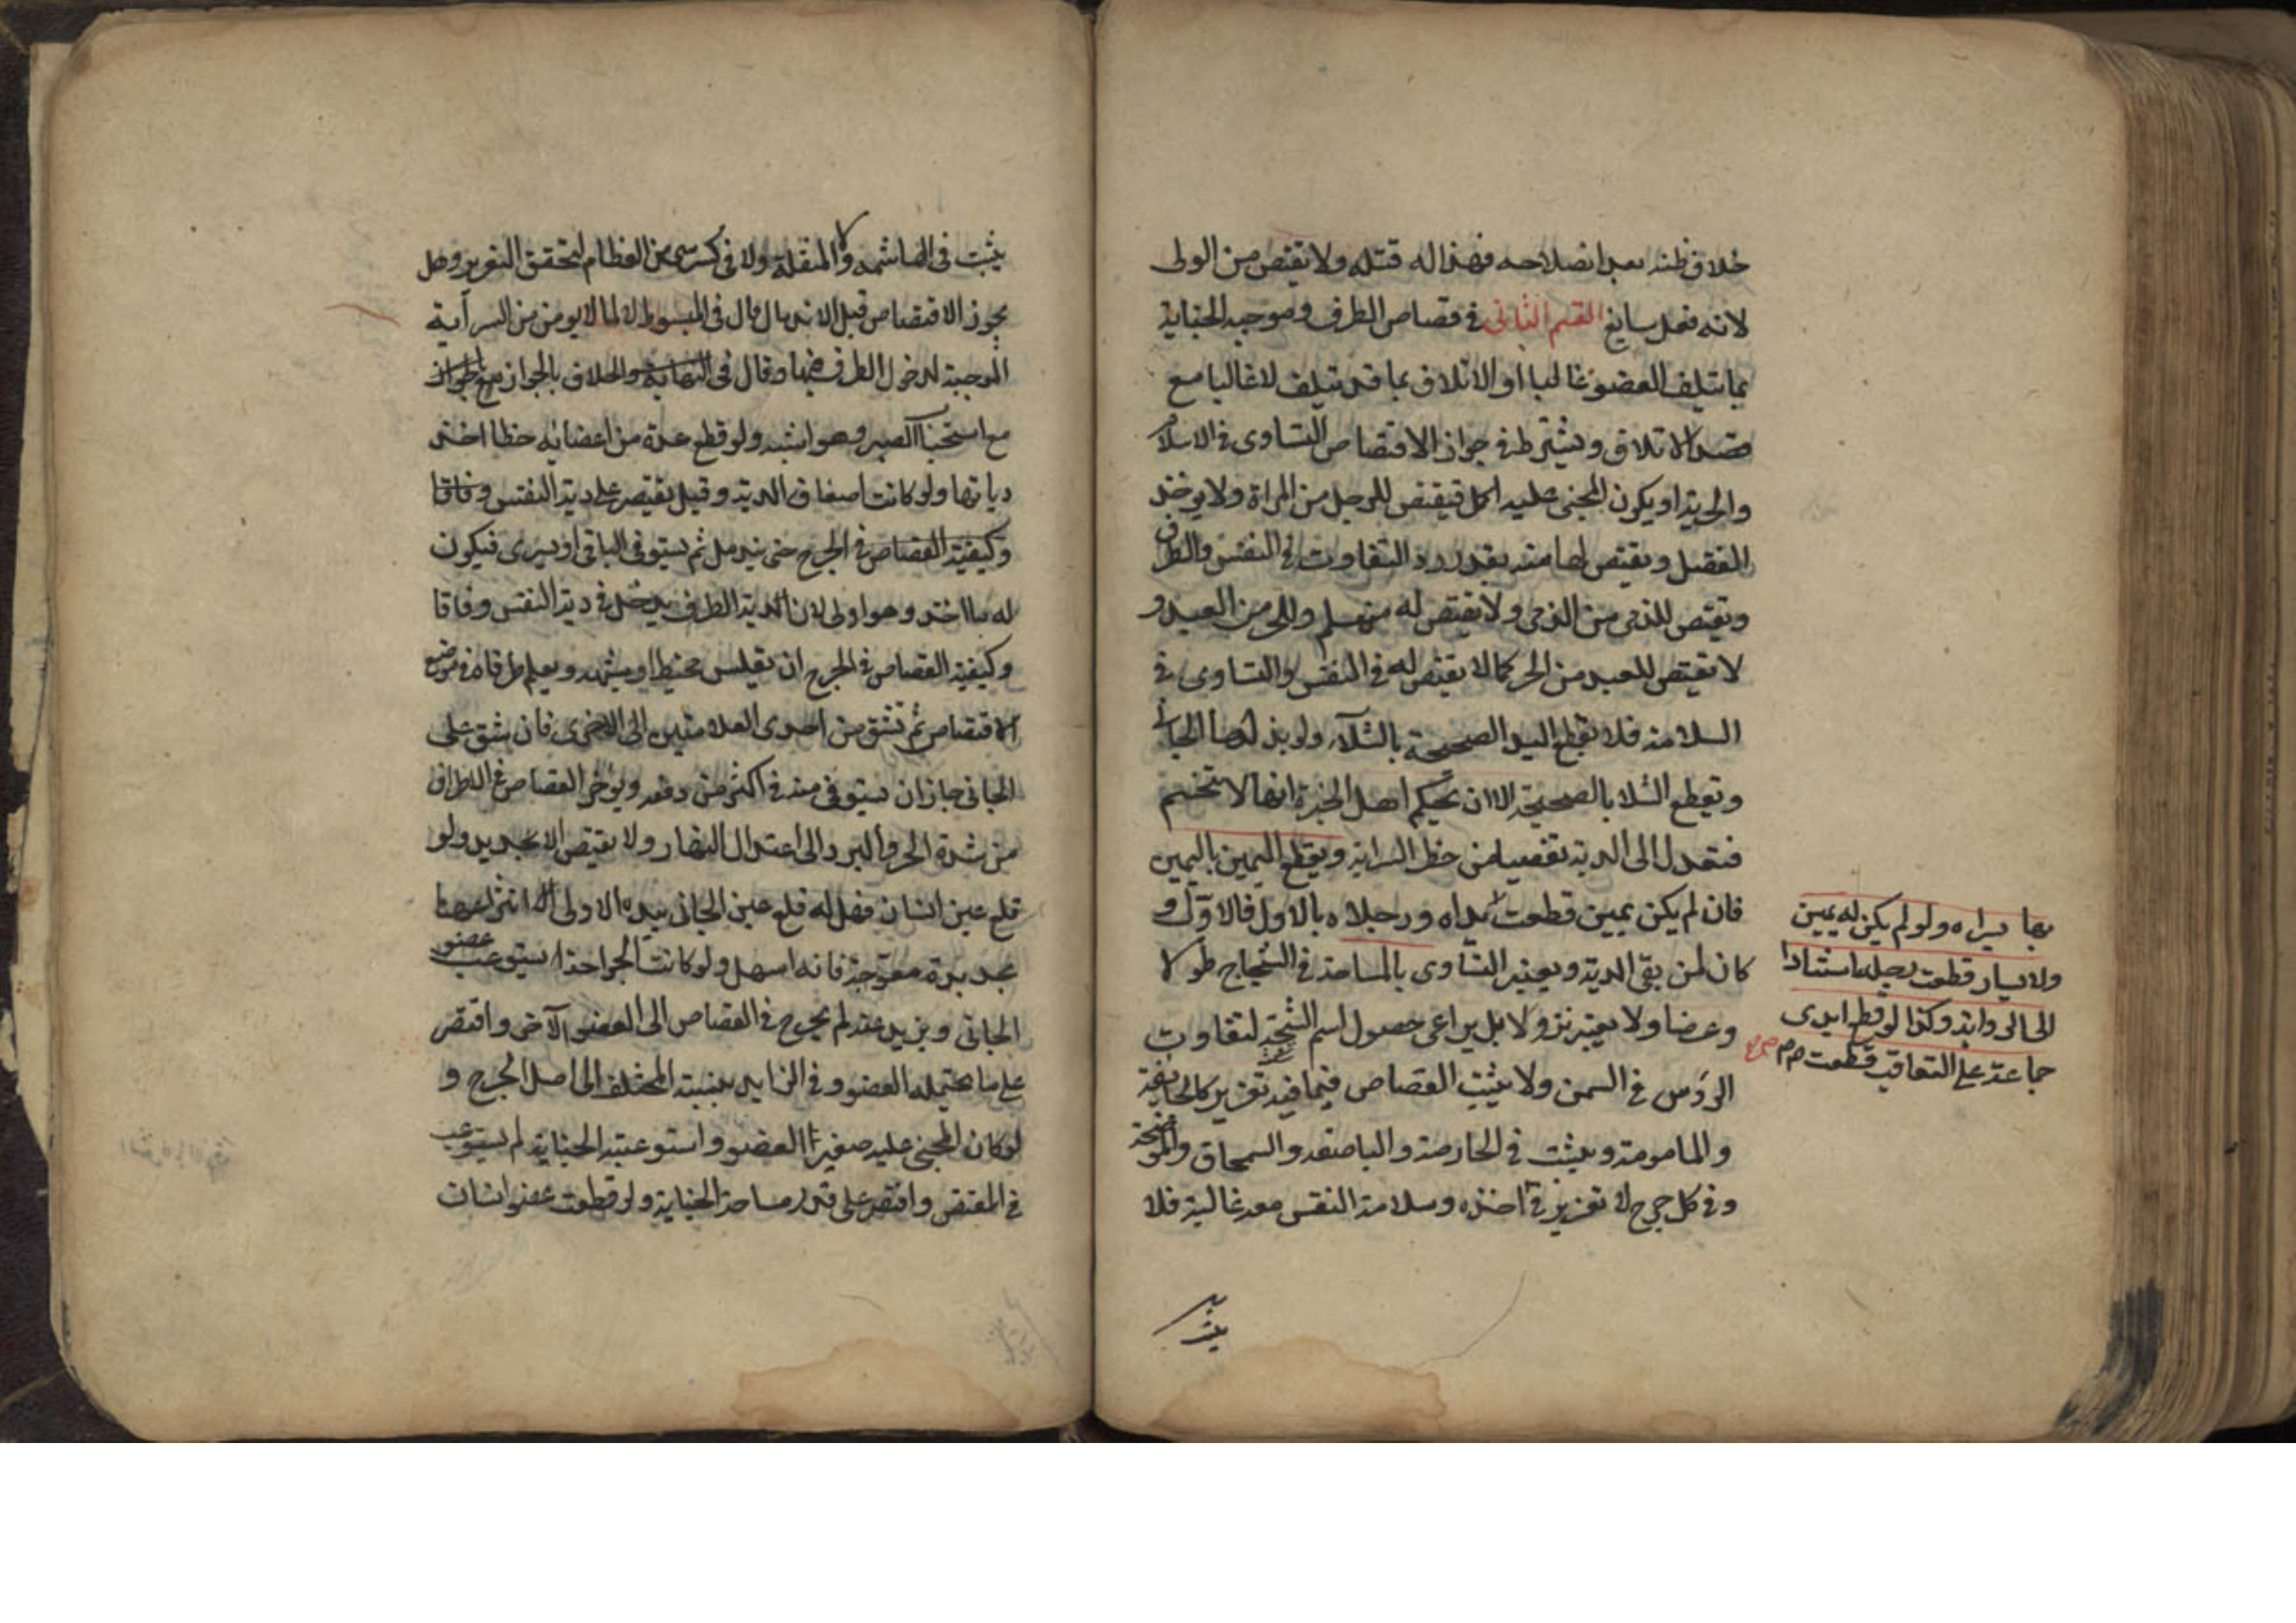 خلاف ظنه بعد انصلاحه فهذا له قتله ولا يقتص من الولى
لانه فعل سايغ القسم الثانى فى قصاص الطرف وموجبه الجناية
بما يتلف العضو غالبا او الاتلاف بما قد يتلف لا غالبا مع
قصد الاتلاف ويشترط فى جواز الاقتصاص التساوى فى الاسلام
والحرية او يكون المجنى عليه اكمل فيقتص للرجل من المراة ولا يوخذ
الفضل ويقتص لها منه بعد رد التفاوت فى النفس والطرف
ويقتص للذمى من الذمى ولا يقتص له من مسلم وللحر من العبد و
لا يقتص للعبد من الحر كما لا يقتص له فى النفس والتساوى فى
السلامة فلا تقطع اليد الصحيحة بالشلآء ولو بذلها الجانى
وتقطع الشلا بالصحيحة الا ان يحكم اهل الخبرة انها لا تنحسم
فتعدل الى الدية تفصيا من خطر السراية ويقطع اليمين باليمين
فان لم يكن يمين قطعت يداه ورجلاه بالاول فالاول و
كان لمن بقى الدية ويعتبر التساوى بالمساحة فى الشجاج طولا
وعرضا ولا يعتبر نزولا بل يراعى حصول اسم الشجة لتفاوت
الروس فى السمن ولا يثبت القصاص فيما فيه تعزير كالجايفة
والمامومة ويثبت فى الحارصة والباضعة والسمحاق والموضحة
وفى كل جرح لا تعزير فى اخذه وسلامة النفس معه غالبة فلا
بها يسراه ولو لم يكن له يمين
ولا يسار قطعت رجله استنادا
الى الرواية وكذا لو قطع ايدى
جماعة على التعاقب قطعت
يثبت فى الهاشمة ولا المنقلة ولا فى كسر شى من العظام لتحقق التغرير وهل
يجوز الاقتصاص قبل الاندمال قال فى المبسوط لا لما لا يومن من السراية
الموجبة لدخول الطرف فيها وقال فى النهاية والخلاف بالجواز
مع استحباب الصبر وهو اشبه ولو قطع عدة من اعضائه خطا اخذ
دياتها ولو كانت اضعاف الدية وقيل يقتصر على دية النفس وفاقا
وكيفية القصاص فى الجرح حتى يندمل ثم يستوفى الباقى او يسرى فيكون
له ما اخذ وهو اولى لان دية الطرف يدخل فى دية النفس وفاقا
وكيفية القصاص فى الجرح ان يقاس بخيط او شبهه ويعلم طرفاه فى موضع
الاقتصاص ثم تشق من احدى العلامتين الى الاخرى فان شق على
الجانى جاز ان يستوفى منه فى اكثر من دفعه ويوخر القصاص فى الاطراف
من شدة الحر والبرد الى اعتدال النهار ولا يقتص الا بحديد ولو
قلع عين انسان فهل له قلع عين الجانى بيده الاولى انتزاعها
بحديدة معوجة فانه اسهل ولو كانت الجراحة تستوعب عضو
الجانى ويزيد عنه لم يخرج فى القصاص الى العضو الآخر واقتصر
على ما يحتمله العضو وفى الزايد بنسبة المتخلف الى اصل الجرح و
لو كان المجنى عليه صغير العضو واستوعبته الجناية لم يستوعب
فى المقتص واقتصر على قدر مساحة الجناية ولو قطعت عضو انسان